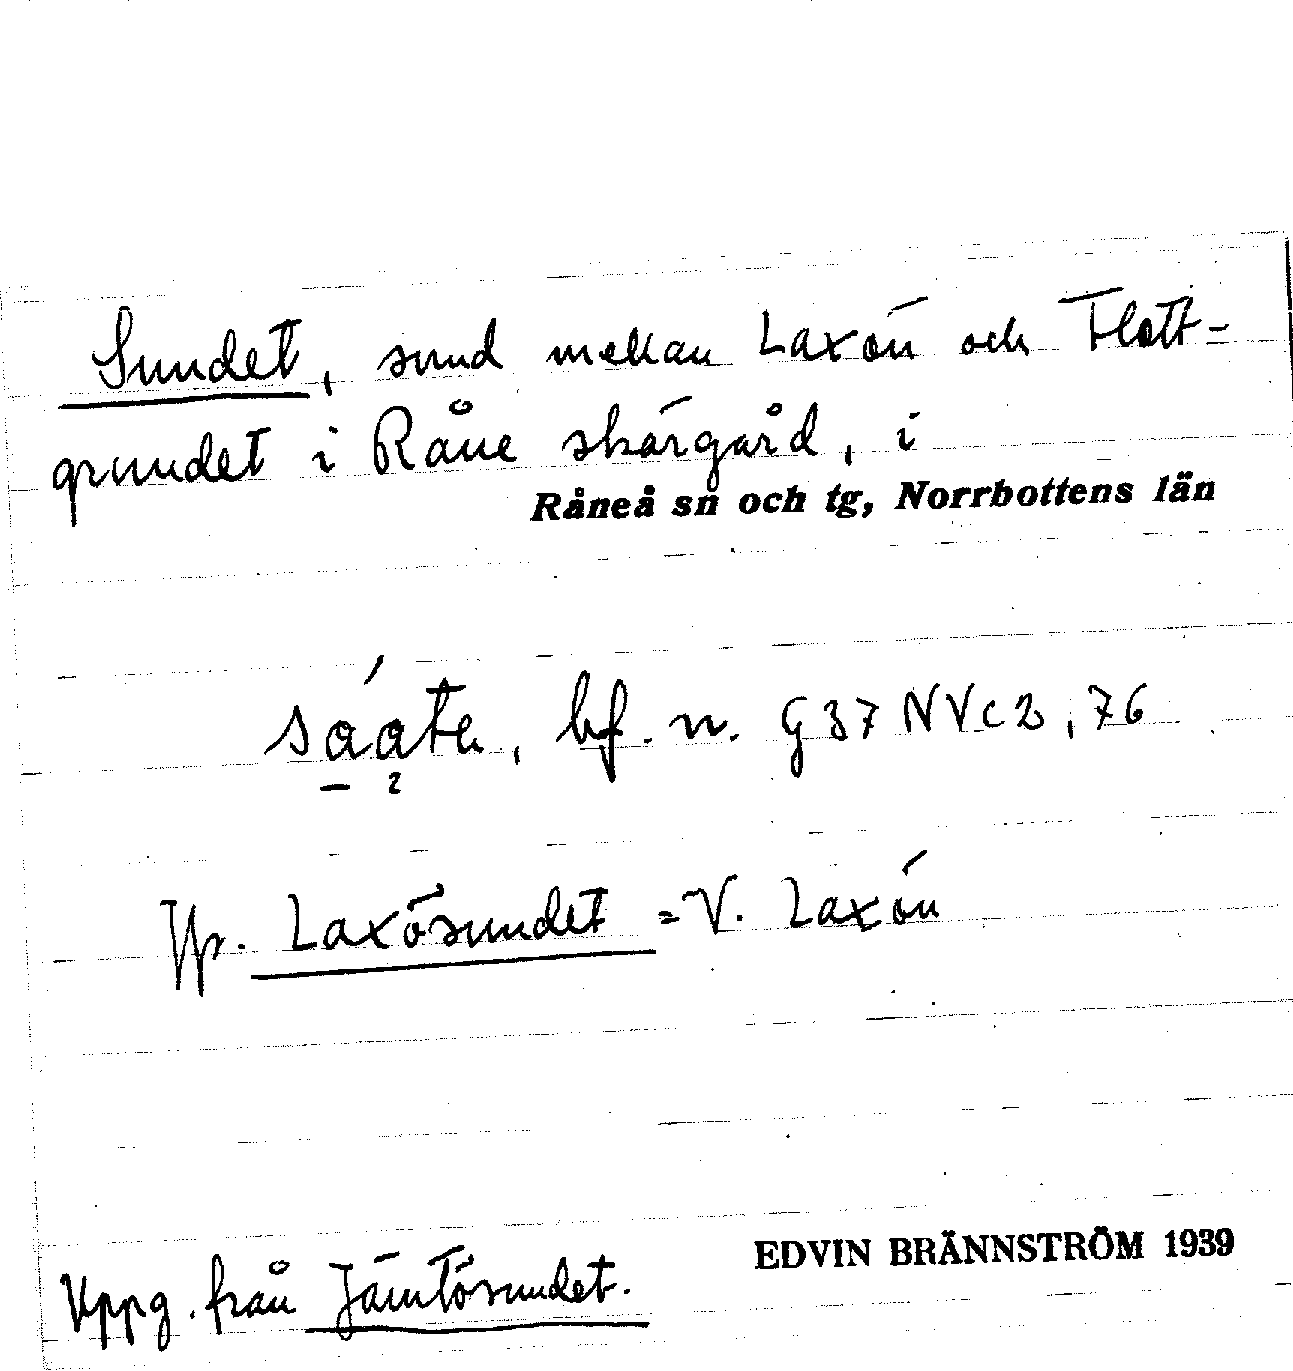 Sundet, sund mellan Laxön och Flott-
grundet i Råne skärgård, i
Råneå sn och tg, Norrbottens län
bf. n. G 37 NV c 2, 76
Laxösundet = V. Laxön
EDVIN BRÄNNSTRÖM 1939
Uppg. från Jämtösundet.